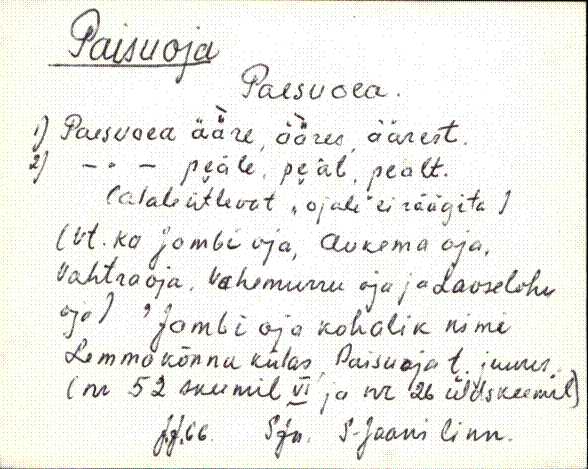 Paisuoja
Paesuoea.
1) Paesuoea ääre, ääres, äärest.
2) — " — peäle, peäl, pealt.
(alaleütlevat „ojale" ei räägita)
(Vt. ka Jombi oja, Aukema oja,
Vahtraoja, Vahemurru oja ja Laoselohu
oja) Jombi oja kohalik nimi
Lemmakõnnu külas, Paisuoja t. juures.
(nr 52 skeemil VI ja nr 26 üldskeemil)
S-Jaani linn.